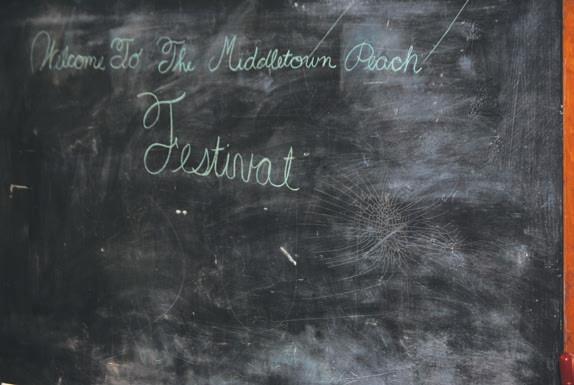 Welcome To The Middletown Peach
Festival